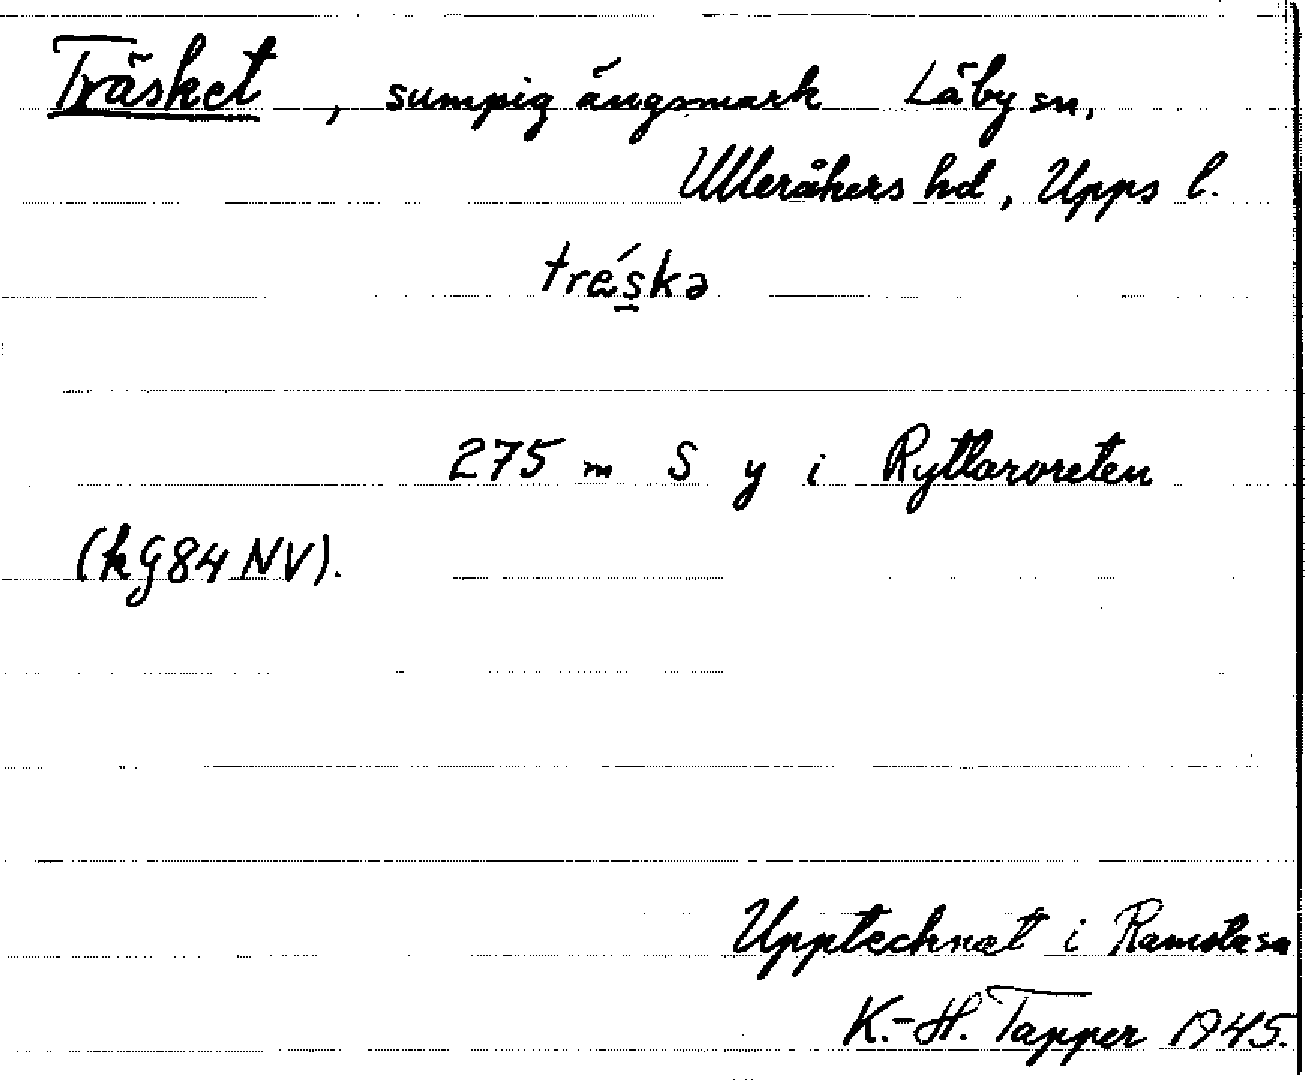 Träsket, sumpig ängsmark Läby sn,
Ulleråkers hd, Upps l.
tréska
275 m S y i Ryttaroreten
(kG84NV).
Upptecknat i Ramsta sn
K.-H. Tapper 1945.